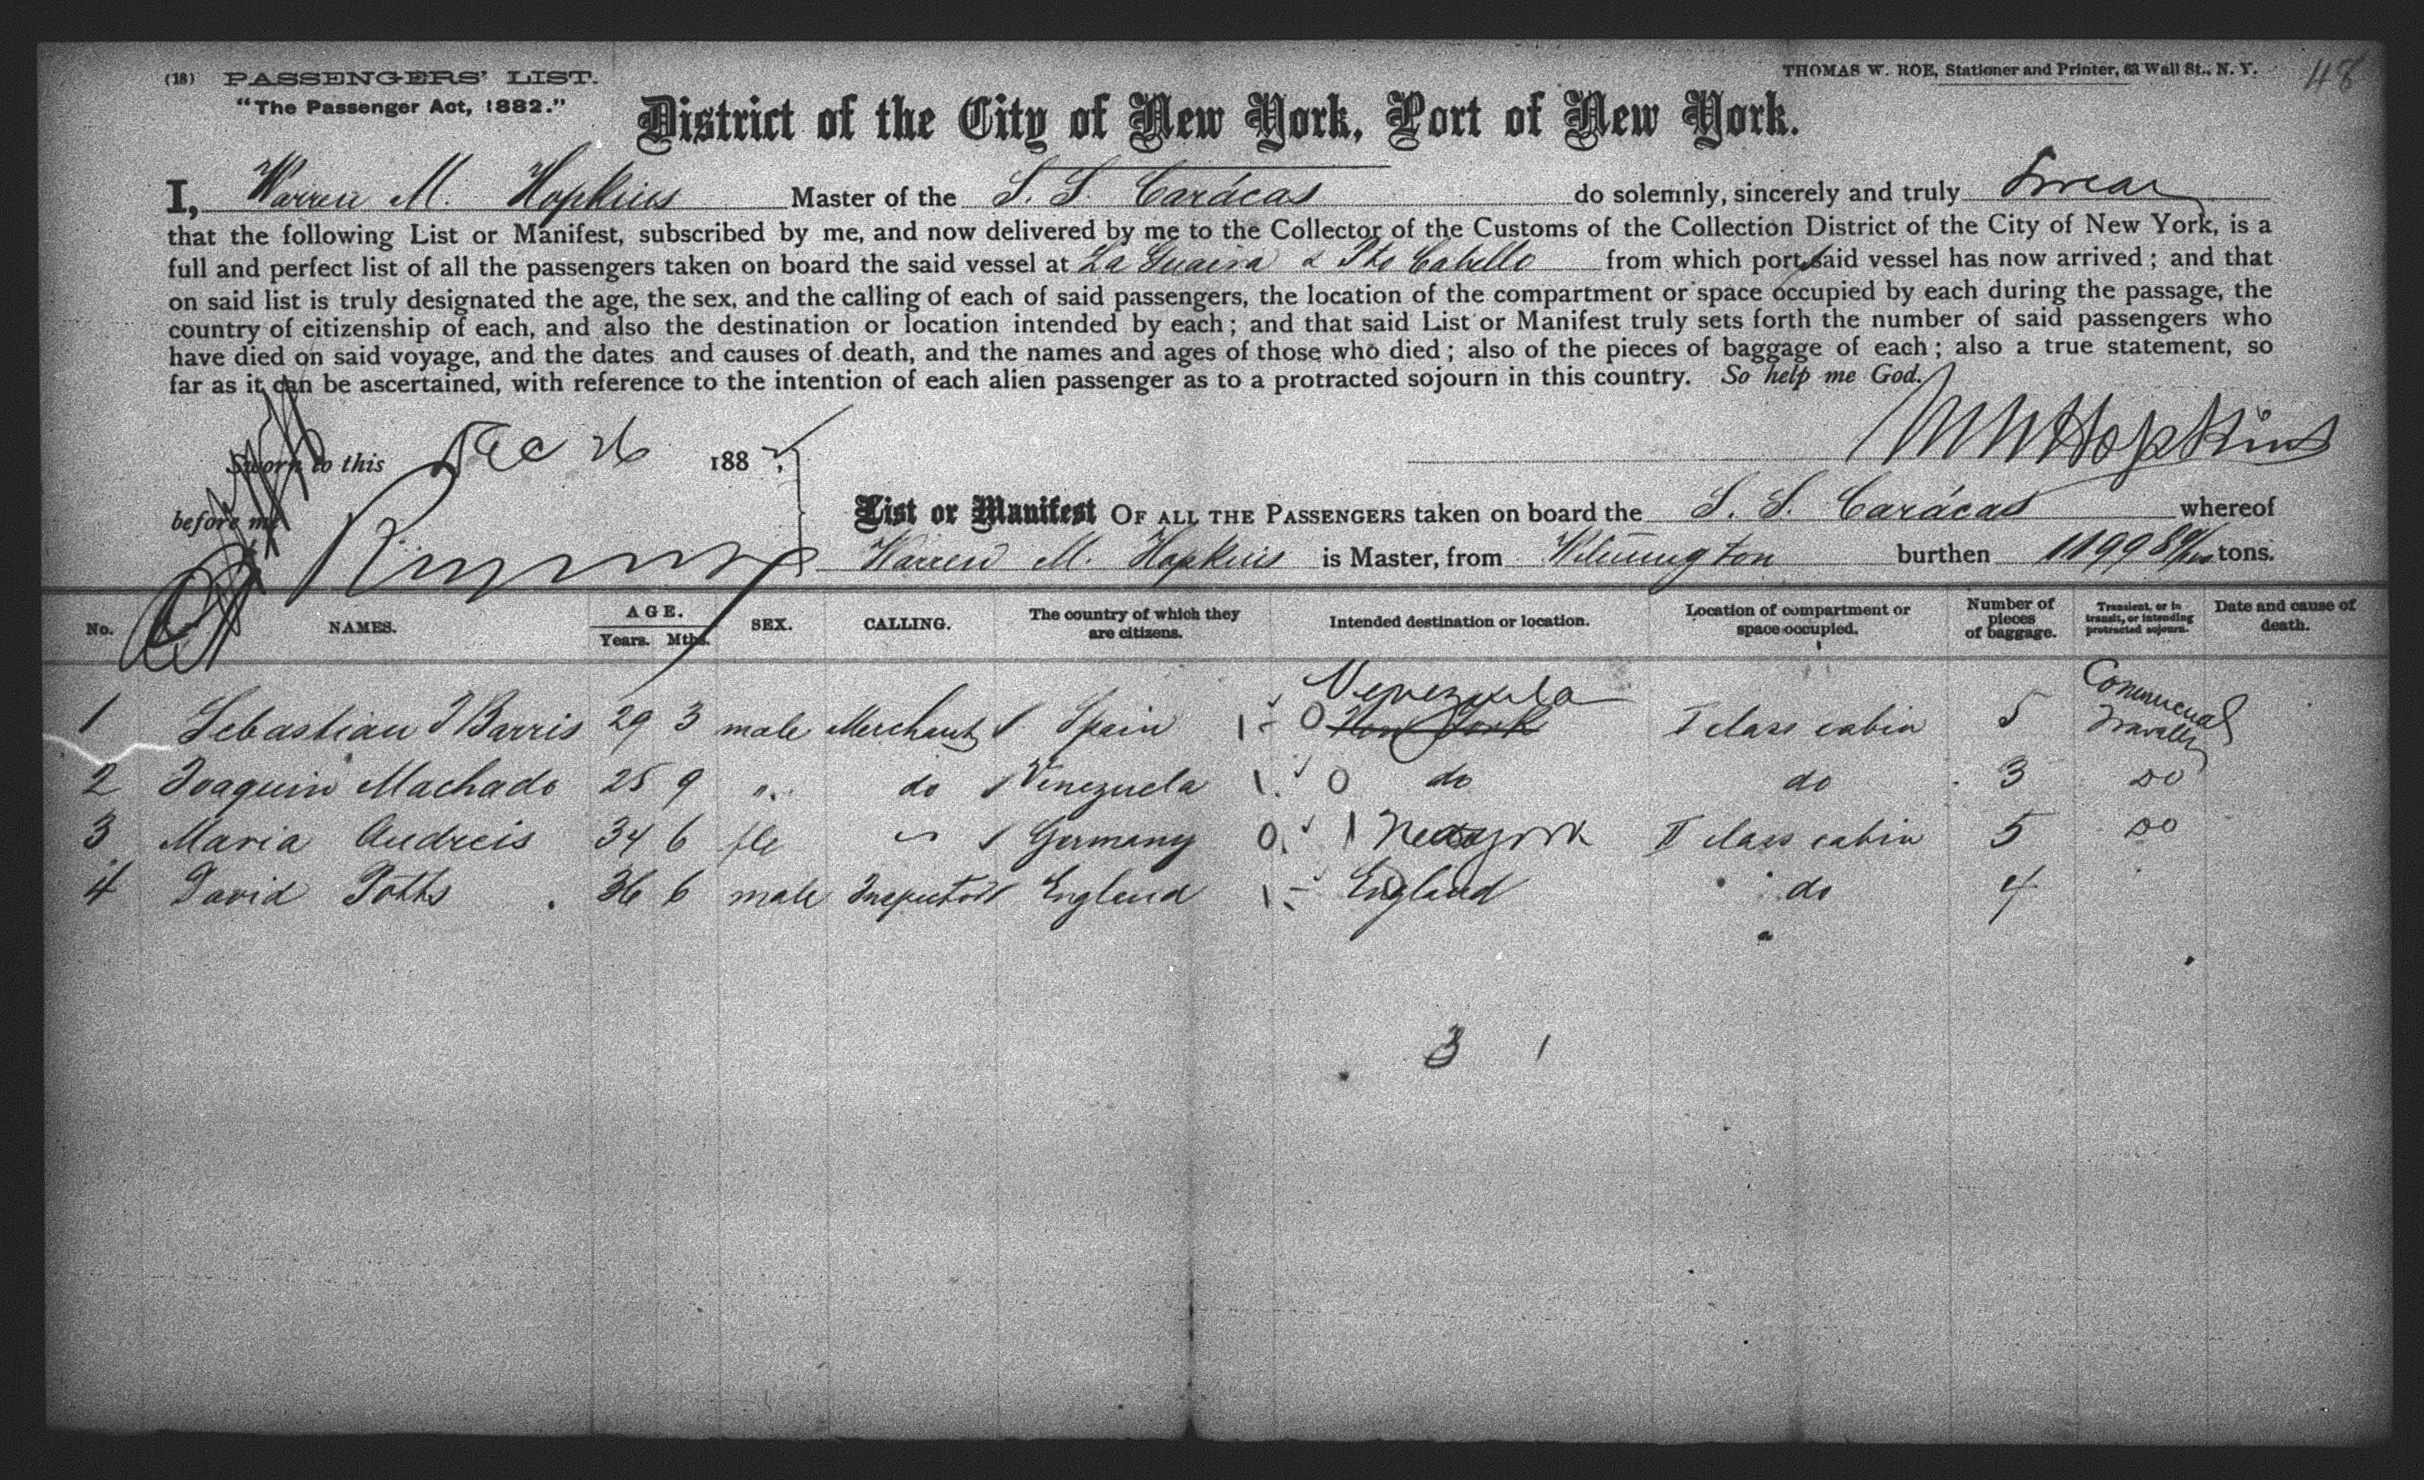 (18) PASSENGERS' LIST.
THOMAS W. ROE, Stationer and Printer, 62 Wall St., N. Y.
48
"The Passenger Act, 1882."
District of the City of New York, Port of New York.
I, Warren M. Hopkins Master of the S. S. Carácas do solemnly, sincerely and truly Swear
that the following List or Manifest, subscribed by me, and now delivered by me to the Collector of the Customs of the Collection District of the City of New York, is a
full and perfect list of all the passengers taken on board the said vessel at La Guaira & Pto Cabello from which port said vessel has now arrived; and that
on said list is truly designated the age, the sex, and the calling of each of said passengers, the location of the compartment or space occupied by each during the passage, the
country of citizenship of each, and also the destination or location intended by each; and that said List or Manifest truly sets forth the number of said passengers who
have died on said voyage, and the dates and causes of death, and the names and ages of those who died; also of the pieces of baggage of each; also a true statement, so
far as it can be ascertained, with reference to the intention of each alien passenger as to a protracted sojourn in this country. So help me God.
Sworn to this Dec 26 188
WM Hopkins
before me
List or Manifest OF ALL THE PASSENGERS taken on board the S. S. Carácas whereof
Warren M. Hopkins is Master, from Wilmington burthen tons.
No. NAMES. AGE. Years. Mths. SEX. CALLING. The country of which they are citizens. Intended destination or location. Location of compartment or space occupied. Number of pieces of baggage. Transient, or in transit, or intending protracted sojourn. Date and cause of death.
Venezuela
1 Sebastian J Barris 29 3 male Merchant Spain 1 - 0 New York I class cabin 5 Commercial Traveller
2 Joaquin Machado 25 9 " do Venezuela 1. 0 do do 3 do
3 Maria Andreis 34 6 fle Germany 0. 1 New york II class cabin 5 do
4 David Potts 36 6 male Inspector England 1 - England do 4
3 1